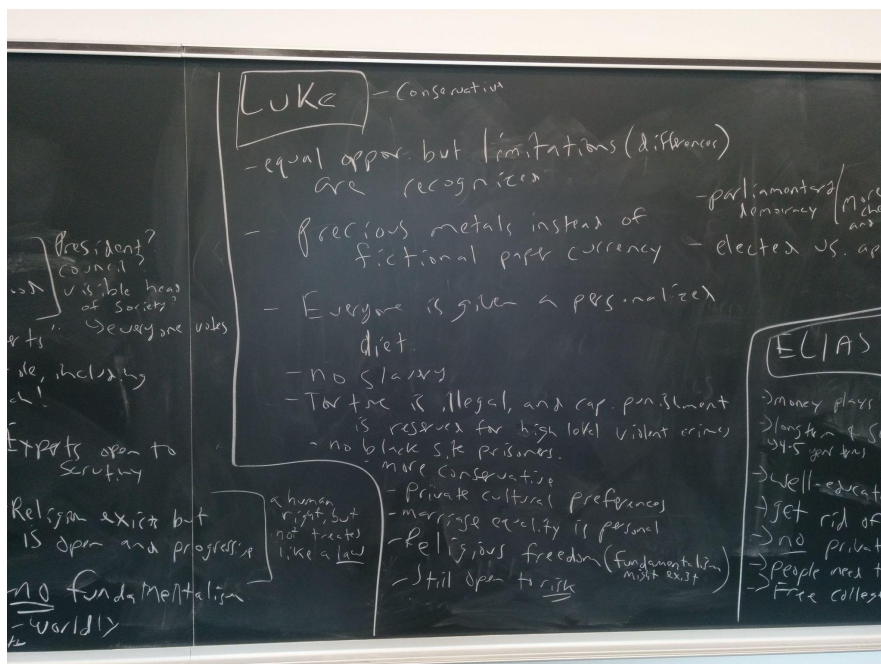 President?
council?
visible head
of society?
everyone votes
including
Experts open to
scrutiny
Religion exists but
is open and progressive
a human
right, but
not treated
like a law
no fundamentalism
- worldly
Luke - Conservative
- equal oppor. but limitations (differences)
are recognized
- Precious metals instead of
fictional paper currency
- Everyone is given a personalized
diet.
- no slavery
- Torture is illegal, and cap. punishment
is reserved for high level violent crimes
- no black site prisoners.
more conservative
- private cultural preferences
- marriage equality is personal
- Religious freedom (fundamentalism
might exist)
- Still open to risk
- parliamentary
democracy
- elected vs.
ELIAS
money plays
4-5 year
well-educat
get rid of
no privat
people need t
Free colleg